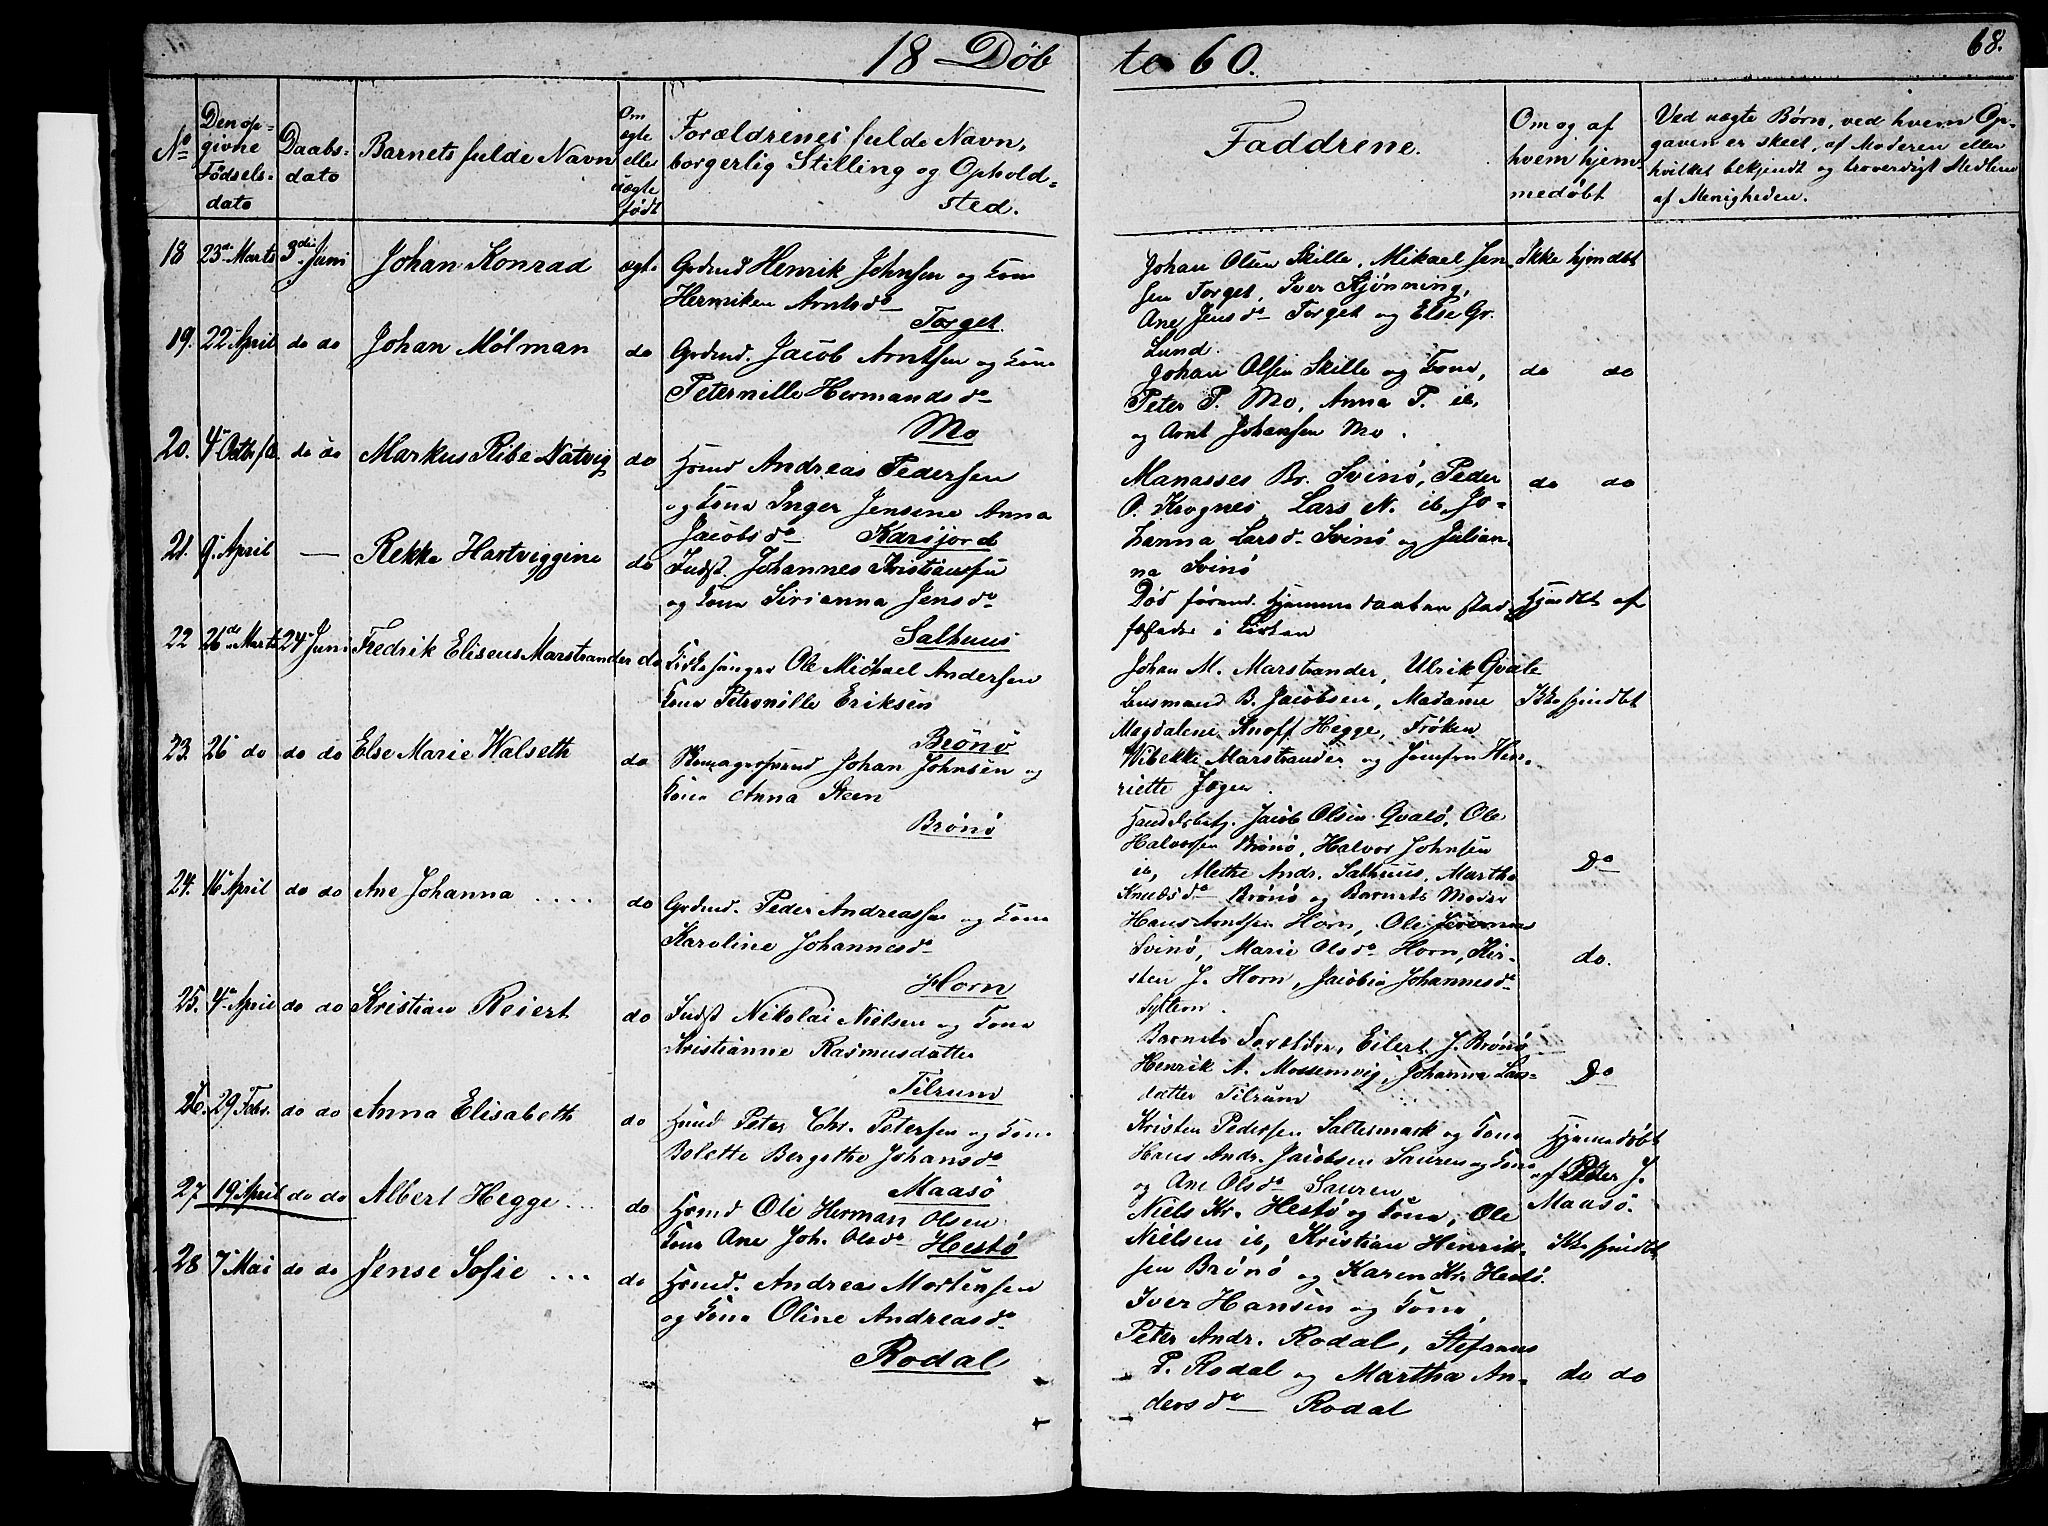 18 Döb
te 60.
68.
No
Den op-
givne
Fødsels-
dato
Daabs-
dato
Barnets fulde Navn
Om
ægte
eller
uægte
født
Forældrenes fulde Navn,
borgerlig Stilling og Ophold=
sted.
Faddrene.
Om og af
hvem hjem-
medøbt
Ved uægte Børn, ved hvem Op-
gaven er skeet, af Moderen eller
hvilket bekjendt og troverdigt Medlem
af Menigheden.
18 23de Marts 3die Juni Johan Konrad ægte
Grdmd Henrik Johnsen og Kone
Henriken Arntsda
Torget
Johan Olsen Skille, Mikael Jen-
sen Torget, Iver Kjønning,
Ane Jensda Torget og Else Gr.
Lund.
Ikke hjemdbt
19. 22 April do do Johan Mölman do
Grdmd. Jacob Arntsen og Kone
Peternille Hermandsda
Mo
Johan Olsen Skille og Kone,
Peter P. Mo, Anna P. ib,
og Arnt Johansen Mo.
do do
20. 4 do do Markus Ribe Natvig do
Hsmd Andreas Pedersen
og Kone Inger Jensine Anna
Jacobsda Karsjord
Manasses Br. Svinö, Peder
O. Krognes, Lars N. ib, Jo-
hanna Larsda Svinö og Julian-
na Svinö
do do
21. 9 April — Rekka Hartviggine do
Indst. Johannes Kristiansen
og Kone Sirianna Jensda
Salhuus
Död förend Hjemmedaaben stad-
fæstedes i Kirken
Hjemdbt af
22 26de Marts 24 Juni Fredrik Eliseus Marstrander do
Kirkesanger Ole Michael Andersen
Kone Petronille Eriksen
Brönö
Johan M. Marstrander, Ulrik Qvale
Lensmand B. Jacobsen, Madame
Magdalene Knoff Hegge, Fröken
Wibekke Marstrander og Jomfru Hen-
riette Jæger.
Ikke hjemdbt
23. 26 do do do Else Marie Walseth do
Johan Johnsen og
Kone Anna Steen
Brönö
Jacob Olsen Qvalö, Ole
Halvorsen Brönö, Halvor Johnsen
ib, Methe Andr. Salhuus, Martha
Knudsda Brönö og Barnets Moder
Do
24. 16 April do do Ane Johanna .... do
Grdmd. Peder Andreassen og Kone
Karoline Johannesda
Horn
Hans Arntsen Horn, Ole
Svinö, Marie Olsda Horn, Kir-
sten J. Horn, Jacobia Johannesda
do.
25. 4de April do do Kristian Reiert do
Indst Nikolai Nielsen og Kone
Kristianne Rasmusdatter
Tilrum
Barnets Forældre, Eilert J. Brönö
Henrik A. Mossemvig, Johanna Lars-
datter Tilrum
Do
26. 29 Febr. do do Anna Elisabeth do
Hsmd Peter Chr. Petersen og Kone
Bolette Bergithe Johansda
Maasö
Kristen Pedersen Saltermark og Kone
Hans Andr. Jacobsen Sauren og Kone
og Ane Olsda Sauren
Hjemmedöbt
af Peter J.
Maasö.
27 19 April do do Albert Hegge... do
Hsmd Ole Herman Olsen
Kone Ane Joh. Olsda Hestö
Niels Kr. Hestö og Kone, Ole
Nielsen ib, Kristian Henrik-
sen Brönö og Karen Kr. Hestö.
Ikke hjemdbt
28 7 Mai do do Jense Sofie ... do
Hsmd. Andreas Mortensen
og Kone Oline Andreasda
Rodal
Iver Hansen og Kone,
Peter Andr. Rodal, Stefanus
P. Rodal og Martha An-
dersda Rodal
do do